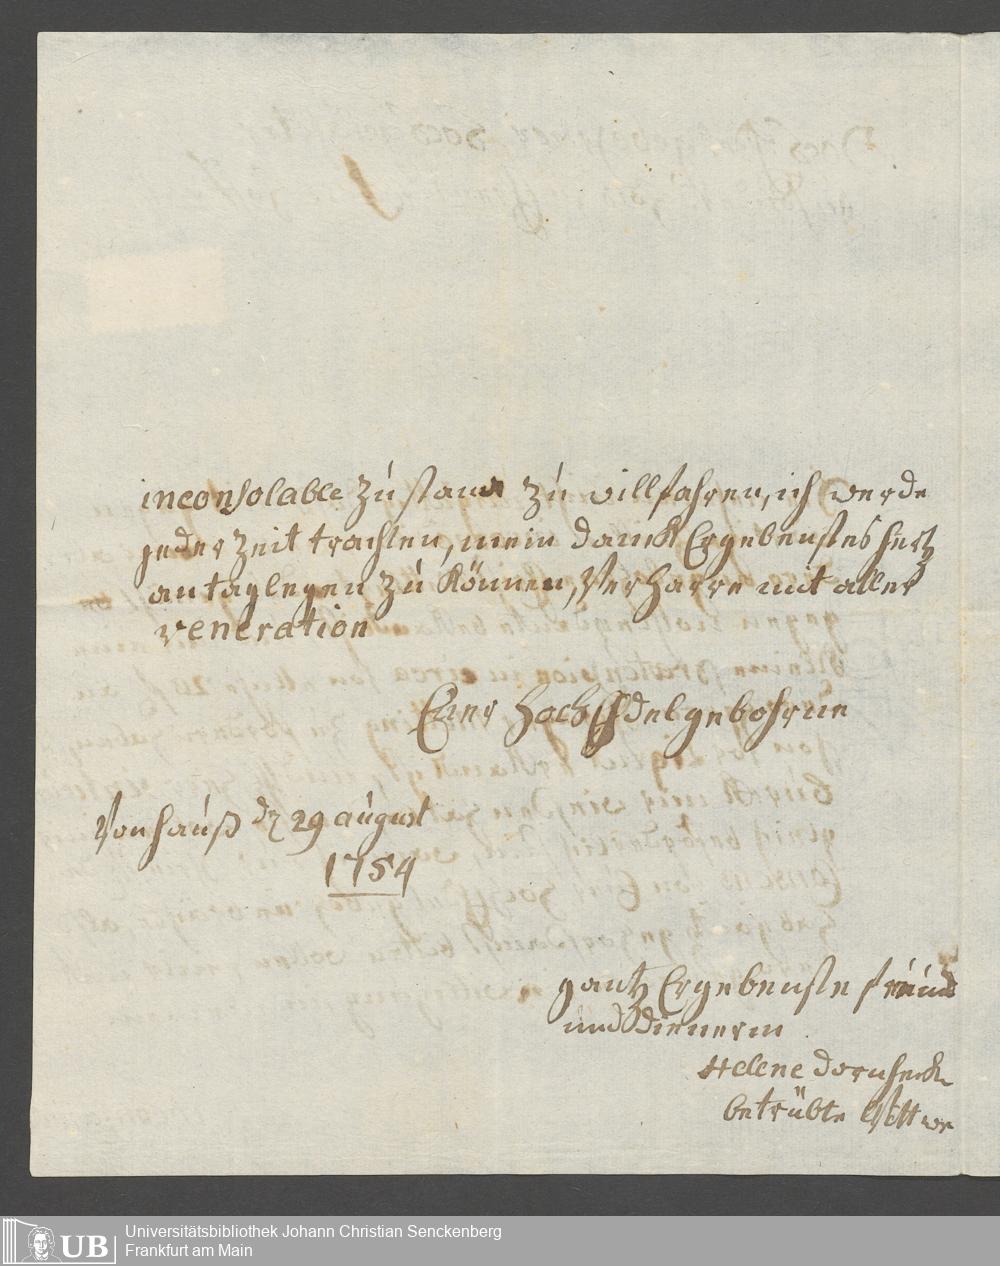 inconsolable Zustand zu willfahren, ich werde
jeder Zeit trachten, mein danck Ergebenstes Hertz
an tag legen zu können, Verharre mit aller
veneration
Euer HochEdelgebohrne
Von Hauß den 29 august
1754
gantz Ergebenste freund
und Dienerin
Helene
betrübte Wittwe
Universitätsbibliothek Johann Christian Senckenberg
Frankfurt am Main
UB